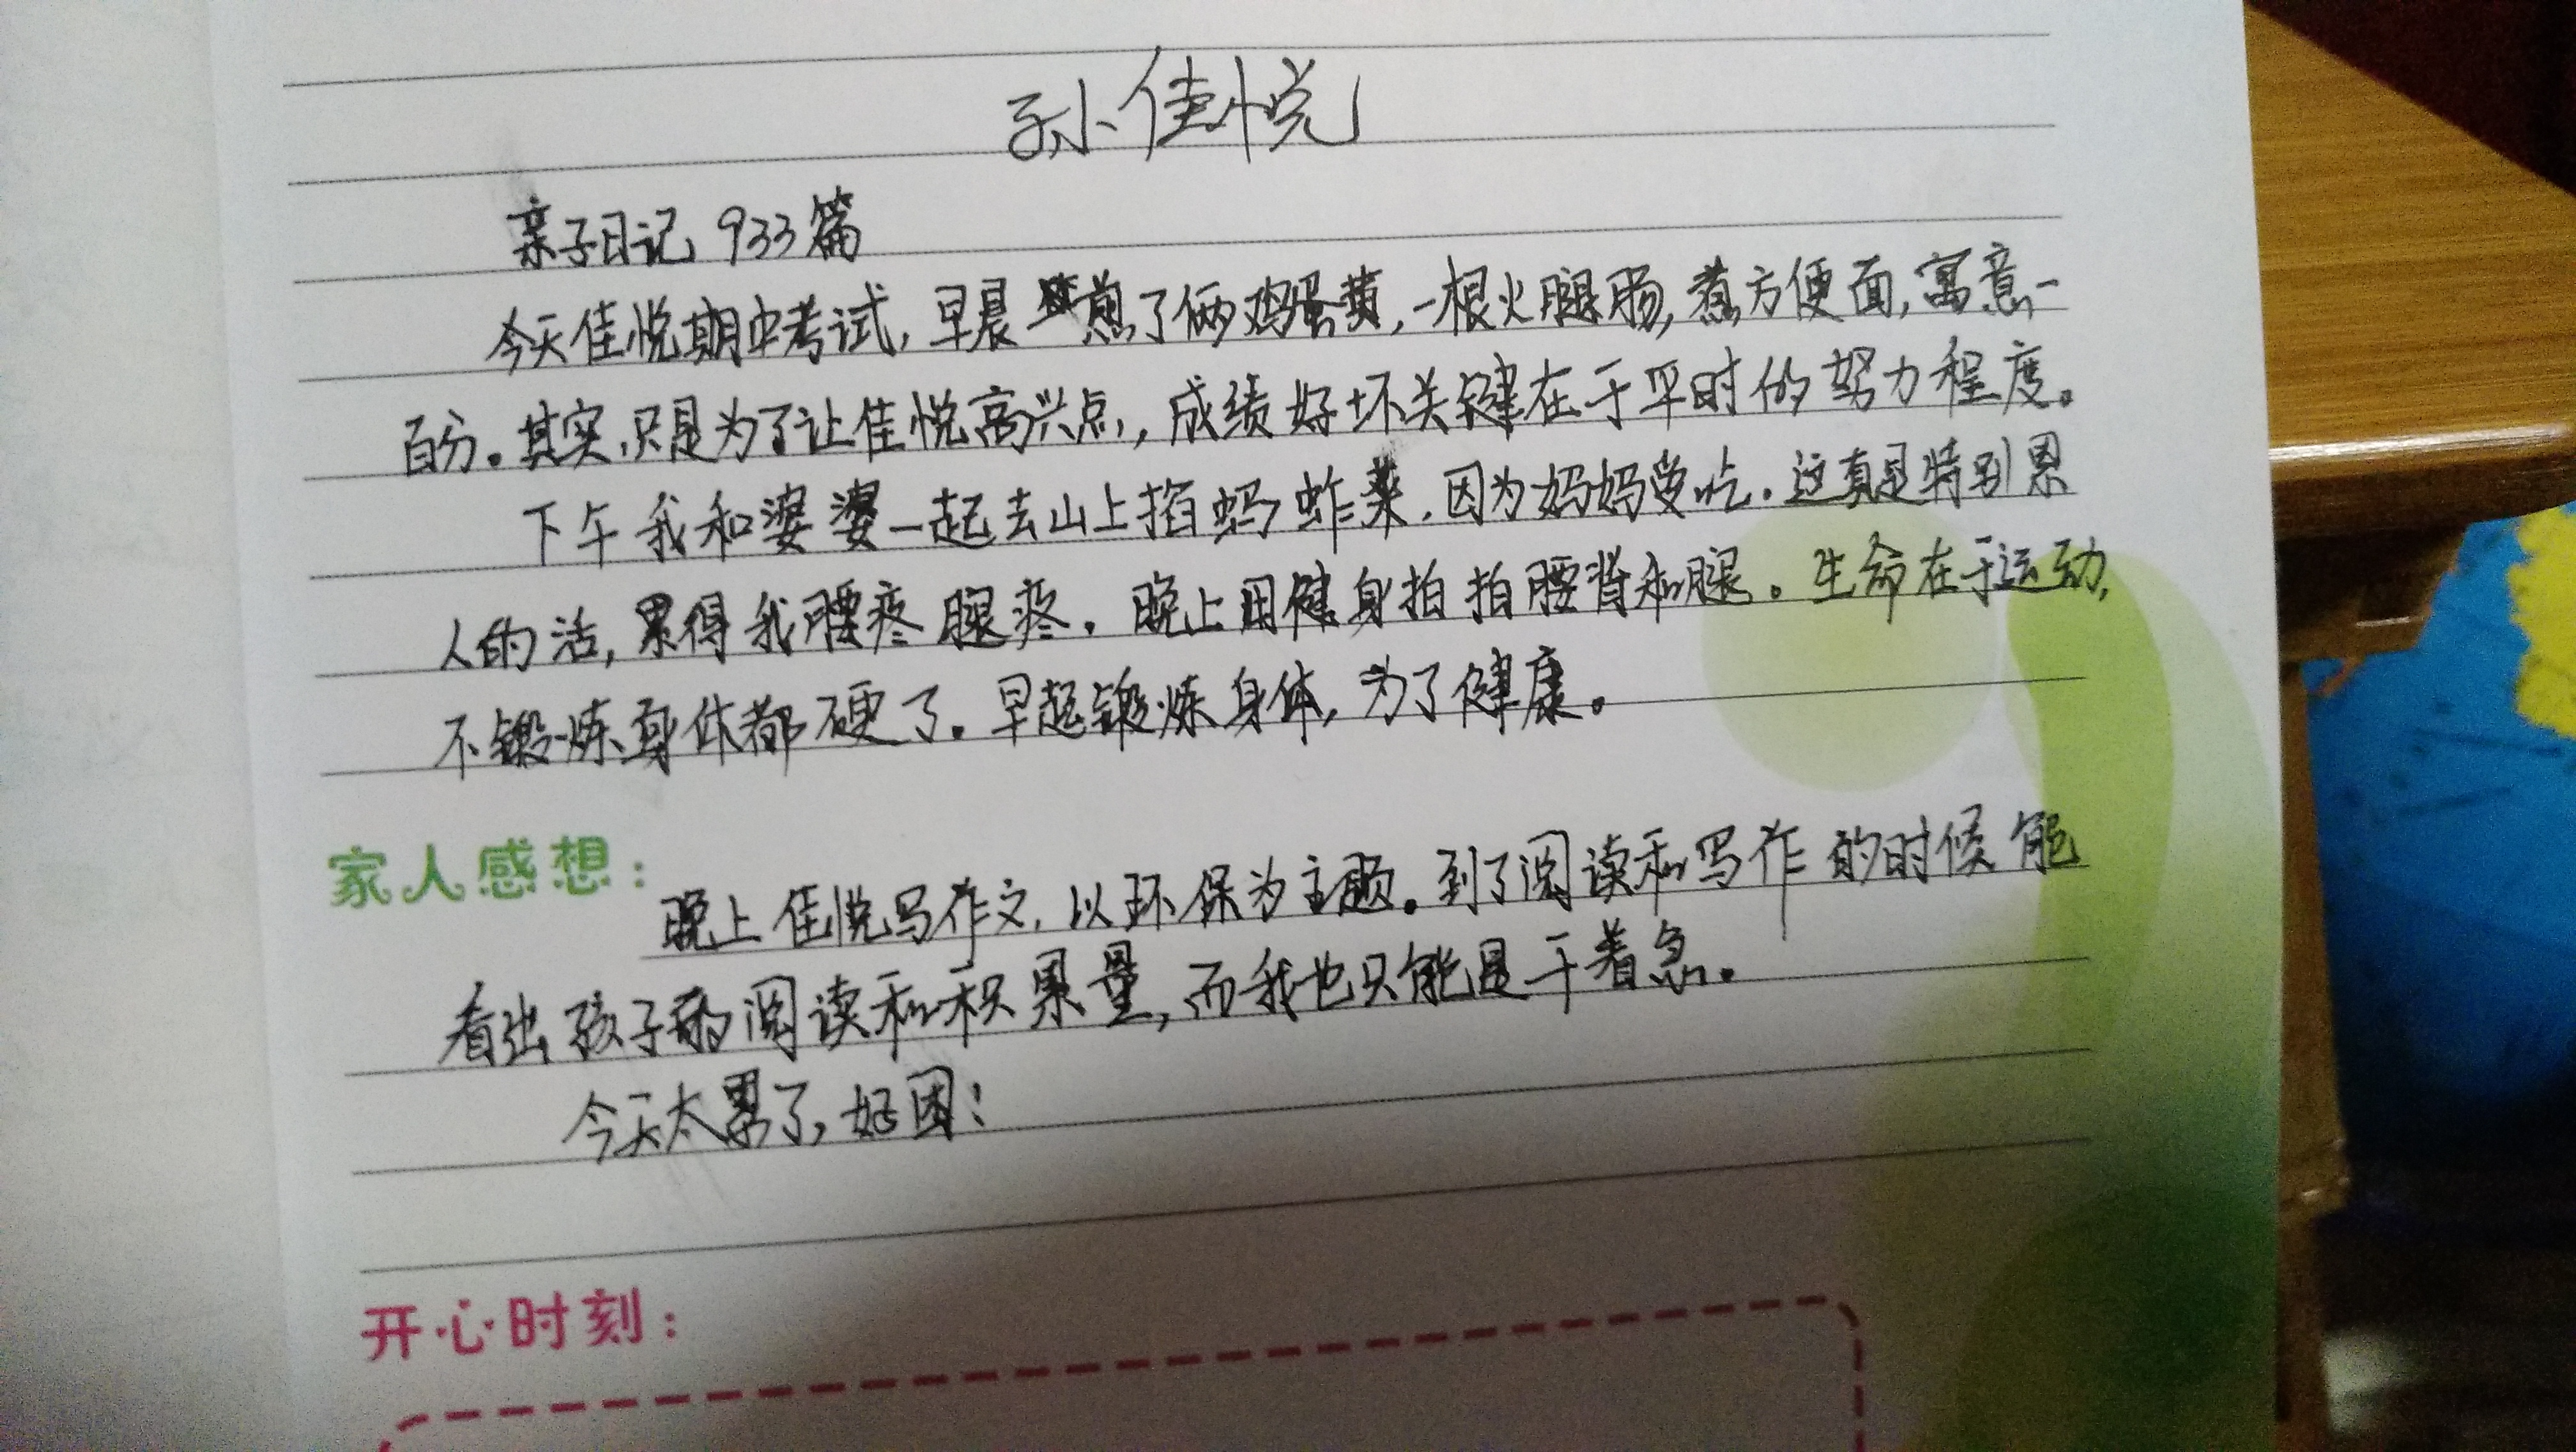 孙佳悦
亲子日记 933篇
今天佳悦期中考试,早晨煎了俩鸡蛋黄,一根火腿肠,煮方便面,寓意一
百分。其实,只是为了让佳悦高兴点,成绩好坏关键在于平时的努力程度。
下午我和婆婆一起去山上掐蚂蚱菜,因为妈妈爱吃.这真是特别累
人的活,累得我腰疼腿疼.晚上用健身拍拍腰背和腿。生命在于运动,
不锻炼身体都硬了。早起锻炼身体,为了健康。
家人感想:
晚上佳悦写作文,以环保为主题。到了阅读和写作的时候能
看出孩子的阅读和积累量,而我也只能是干着急。
今天太累了,好困!
开心时刻: